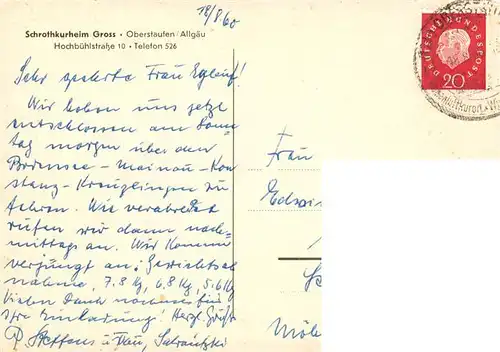 18/8.60
Schrothkurheim Gross • Oberstaufen/Allgäu
Hochbühlstraße 10 • Telefon 526
Sehr geehrte Frau
Wir haben uns jetzt
entschlossen am Sonn=
tag morgen über den
Bodensee - Mainau - Kon=
stanz - Kreuzlingen zu
fahren. Wie verabredet
rufen wir dann nach=
mittags an. Wir kommen
verjüngt an! Gewichtsab
nahme, 7.8 Kg, 6.8 Kg, 5.6 Kg
Vielen Dank nochmals für
Ihre Einladung! Herzl. Grüße
Steffens u. Frau,
Frau
DEUTSCHE BUNDESPOST
20